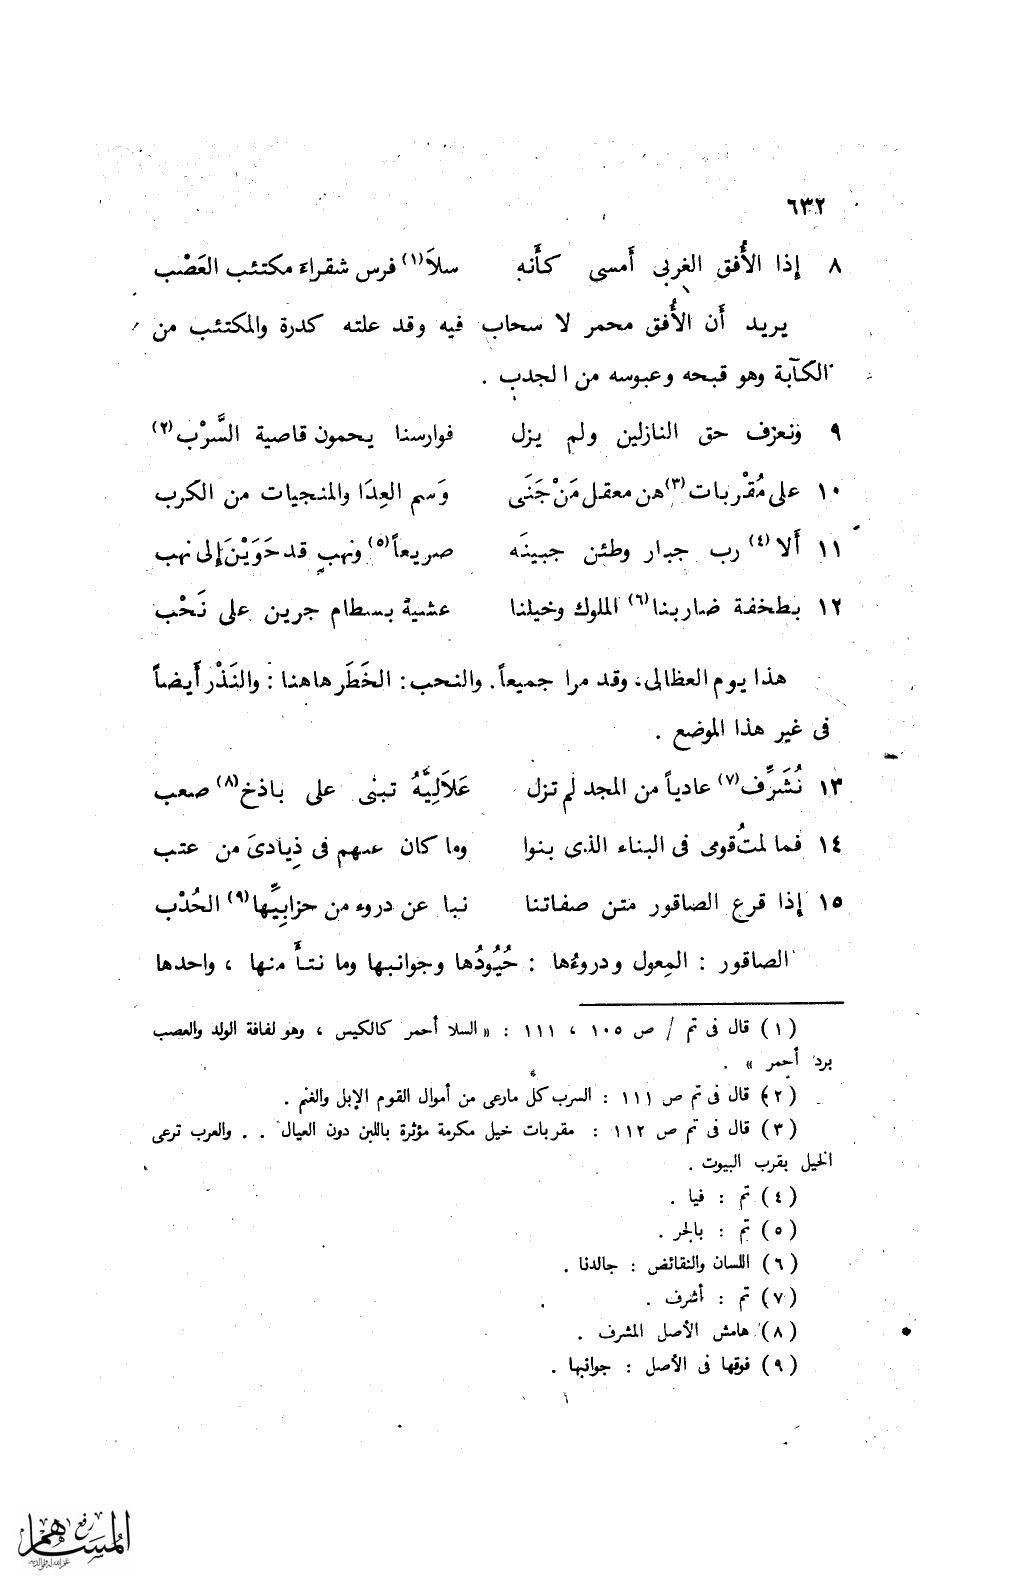 ٦٣٢
٨ إذا الأُفق الغربى أَمسى كأَنه سلاَ(١) فرس شقراءَ مكتئب العَصْب
يريد أَن الأُفق محمر لا سحاب فيه وقد علته كدرة والمكتئب من
الكآبة وهو قبحه وعبوسه من الجدب .
٩ ونعزف حق النازلين ولم يزل فوارسنا يحمون قاصية السَّرْب(٢)
١٠ على مُقْربات(٣) هن معقل مَنْ جَنَى وَسم العِدَا والمنجيات من الكرب
١١ أَلا(٤) رب جبار وطئن جبينَه صريعاً(٥) ونهبٍ قد حَوَيْنَ إلى نهب
١٢ بطخفة ضاربنا(٦) الملوك وخيلنا عشية بسطام جرين على نَحْب
هذا يوم العظالى، وقد مرا جميعاً. والنحب : الخَطَر هاهنا : والنَذْر أَيضاً
فى غير هذا الموضع .
١٣ نُشَرِّف(٧) عادياً من المجد لم تزل عَلاَلِيَّهُ تبنى على باذخ(٨) صعب
١٤ فما لمتُ قومى فى البناء الذى بنوا وما كان عنهم فى ذِيادىَ من عتب
١٥ إذا قرع الصاقور متن صفاتنا نبا عن دروء من حزابِيِّها(٩) الحُدْب
الصاقور : المِعول ودروءُها : حُيُودُها وجوانبها وما نتأَ منها ، واحدها
(١) قال فى تم / ص ١٠٥ ، ١١١ : « السلا أحمر كالكيس ، وهو لفافة الولد والعصب
برد أحمر » .
(٢) قال فى تم ص ١١١ : السرب كل مارعى من أموال القوم الإبل والغنم .
(٣) قال فى تم ص ١١٢ : مقربات خيل مكرمة مؤثرة باللبن دون العيال . . والعرب ترعى
الخيل بقرب البيوت .
(٤) تم : فيا .
(٥) تم : بالجر .
(٦) اللسان والنقائض : جالدنا .
(٧) تم : أشرف .
(٨) هامش الأصل المشرف .
(٩) فوقها فى الأصل : جوانبها .
رفع
المساهم